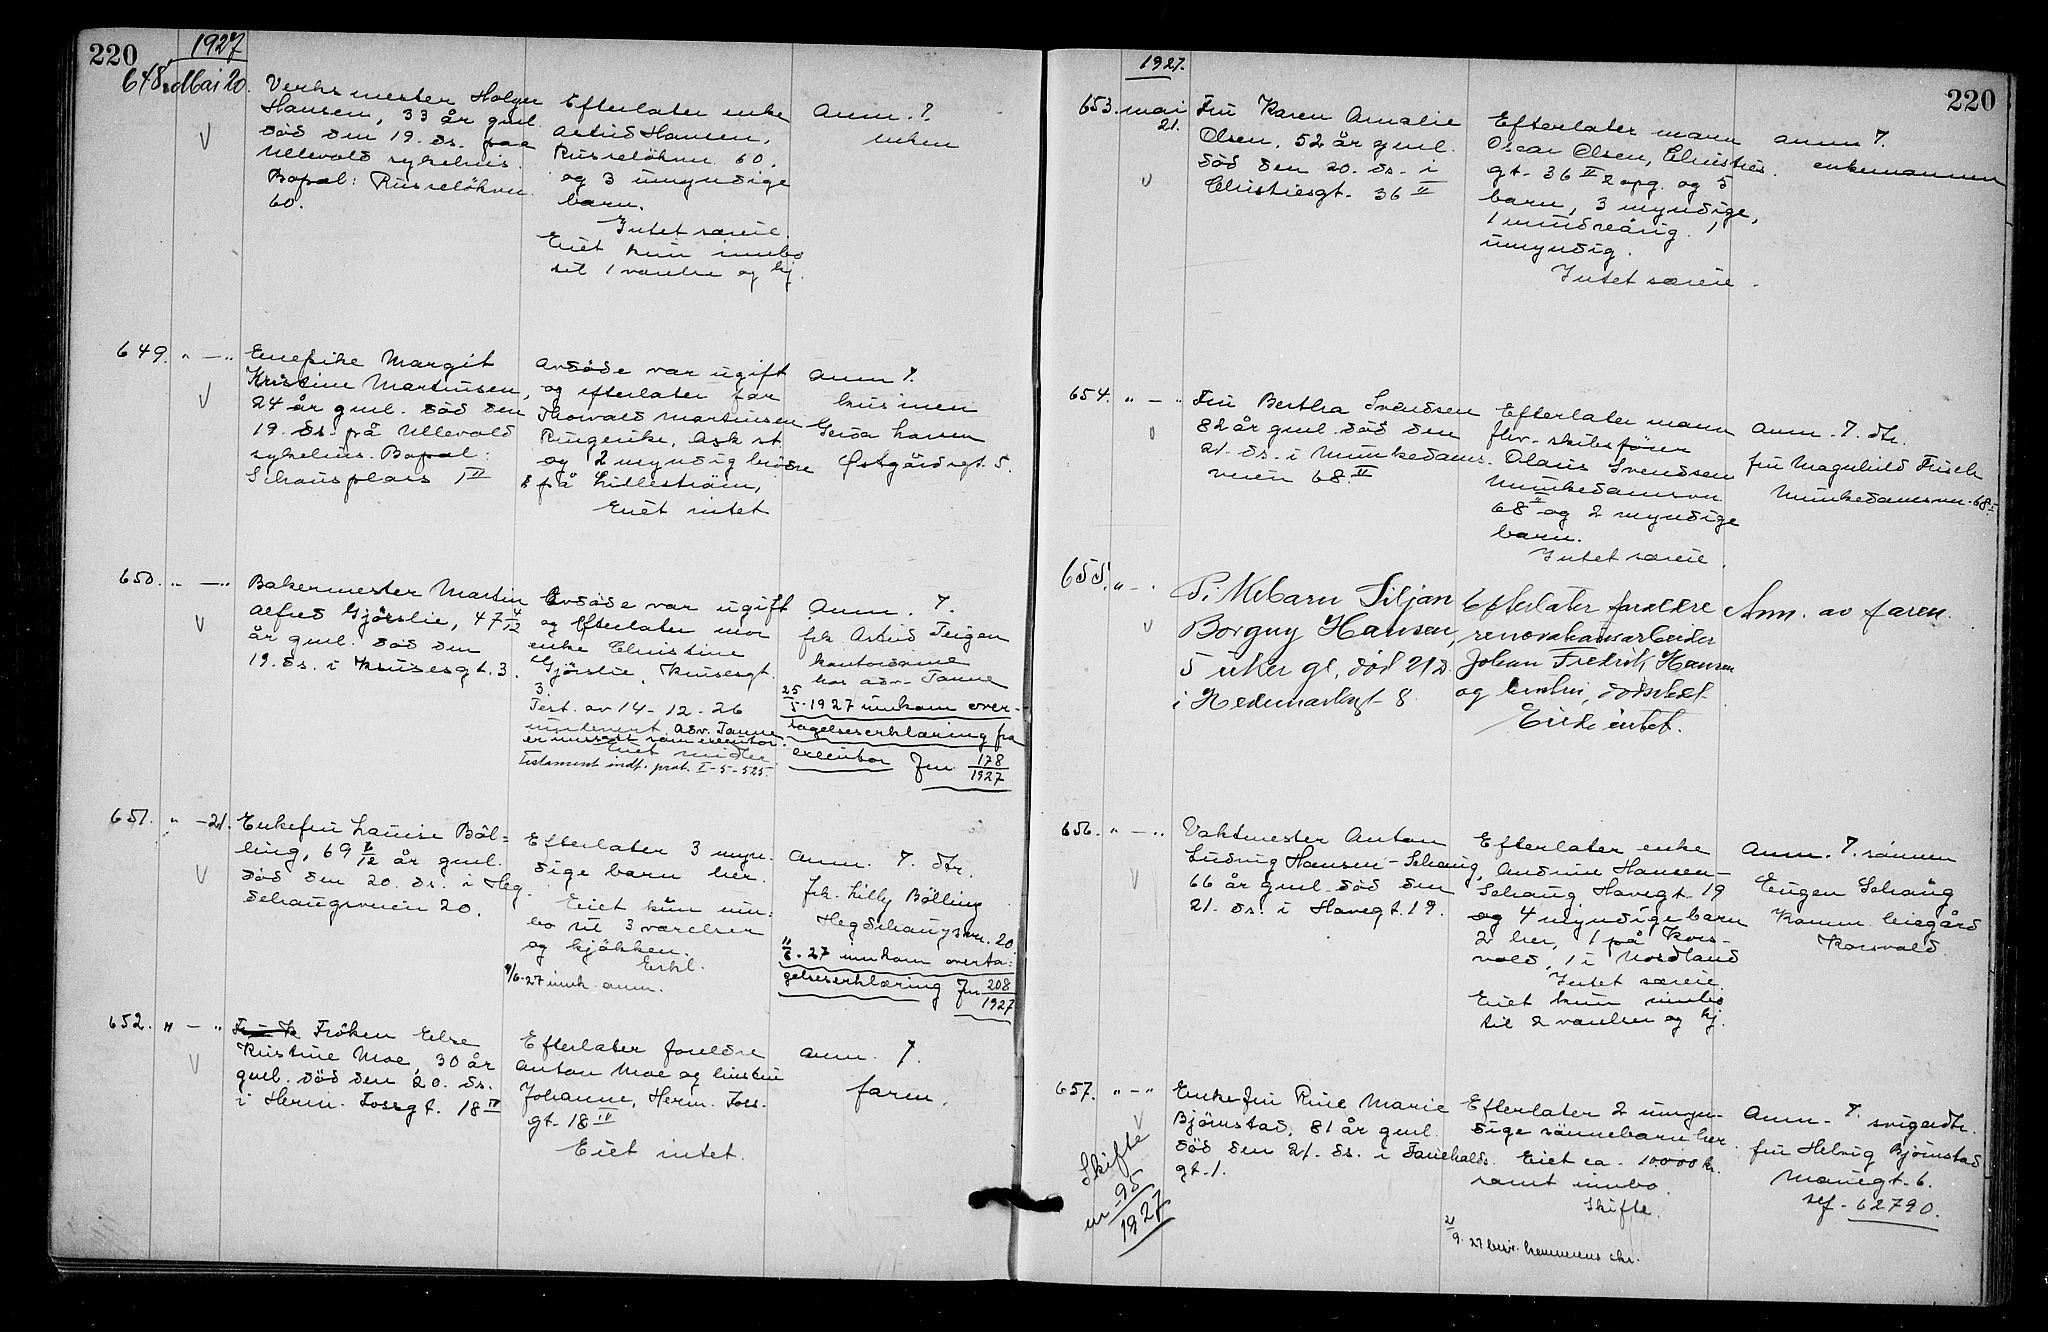 220
1927
648. Mai 20.
Verksmester Holger
Hansen, 33 år gml.
död den 19. ds. paa
Ullevold sykehus.
Bopæl: Russelökvn.
60.
Efterlater enke
Astrid Hansen,
Russelökvn. 60.
og 3 umyndige
barn.
Intet særeie.
Eiet kun innbo
til 1 værelse og kj.
Anm. ?.
enken
649. " — "
Enepike Margit
Kristine Martinsen,
24 år gml. död den
19. ds. på Ullevold
sykehus. Bopæl:
Schousplass 1 II
Avdöde var ugift
og efterlater far
Thorvald Martinsen
Ringerike, Ask st.
og 2 myndig brödre
på Lilleström,
Eiet intet
Anm ?.
kusinen
Gerda Larsen
Östgårdsgt. 5.
650. " — "
Bakermester Martin
Alfred Gjörslie, 47 4/12
år gml. död den
19. ds. i Krusesgt. 3.
Avdöde var ugift
og efterlater mor
enke Christine
Gjörslie, Krusesgt.
3.
Test. av 14-12-26
innlevert. Adv. Tanne
er innsatt som executor.
Eiet midler
Testament indt. prot. I-5-525.
Anm. ?.
frk. Astrid Teigen
kontordame
hos adv. Tanne
25/5-1927 innkom over-
tagelseserklæring fra
executor Jnr 178/1927
651. " — 21.
Enkefru Lauise Böl=
ling, 69 6/12 år gml.
död den 20. ds. i Heg
dehaugsveien 20.
Efterlater 3 myn-
dige barn her.
Eiet kun inn-
bo til 3 værelser
og kjökken.
Erkl.
9/6-27 innk. anm.
Anm. ?. dtr.
frk. Lilly Bölling
Hegdehaugsvn. 20
11/6. 27 innkom overta-
gelseserklæring Jnr 208/1927
652. " — "
Fröken Else
Kristine Moe, 30 år
gml. död den 20. ds.
i Herm. Fossgt. 18 IV
Efterlater foreldre
Anton Moe og hustru
Johanne, Herm. Foss-
gt. 18 IV
Eiet intet.
Anm. ?.
faren.
1927.
220
653. mai
21.
Fru Karen Amalie
Olsen, 52 år gml.
död den 20. ds. i
Christiesgt. 36 II
Efterlater mann
Oscar Olsen, Christies
gt. 36 II 2 opg. og 5
barn, 3 myndige,
1 mindreårig, 1
umyndig.
Intet særeie.
Anm ?.
enkemannen
654. " — "
Fru Bertha Svendsen
82 år gml. död den
21. ds. i Munkedams-
veien 68. II
Efterlater mann
fhv. skibsförer
Olaus Svendsen
Munkedamsvn
68 II og 2 myndige
barn.
Intet særeie.
Anm. ?. dtr.
fru Magnhild Frisch
Munkedamsvn. 68 II
655. " — "
Pikebarn Siljan
Borguy Hansen,
5 uker gl, död 21 ds.
i Hedemarksgt 8
Efterlater foreldre
renovationsarbeider
Johan Fredrik Hansen
og hustru, dödsstedet
Eiede intet.
Anm. av faren.
656. " — "
Vaktmester Anton
Ludvig Hansen-Schaug,
66 år gml. död den
21. ds. i Havegt. 19.
Efterlater enke
Andrine Hansen-
Schaug Havegt. 19
og 4 myndige barn
2 her, 1 på Kors-
vold, 1 i Nordland
Intet særeie.
Eiet kun innbo
til 2 værelser og kj.
Anm. ?. sönnen
Eugen Schaug
Komm. leiegård
Korsvold.
657. " — "
Enkefru Rine Marie
Bjömstad, 81 år gml.
död den 21. ds. i Fauchalds-
gt. 1.
Skifte
nr 95/1927
Efterlater 2 umyn-
dige sönnebarn her.
Eiet ca. 10.000 kr.
samt innbo.
Skifte.
21/9. 27
Anm. ?. svigerdtr.
fru Helvig Bjömstad
Maurigt. 6.
tlf. 62790.